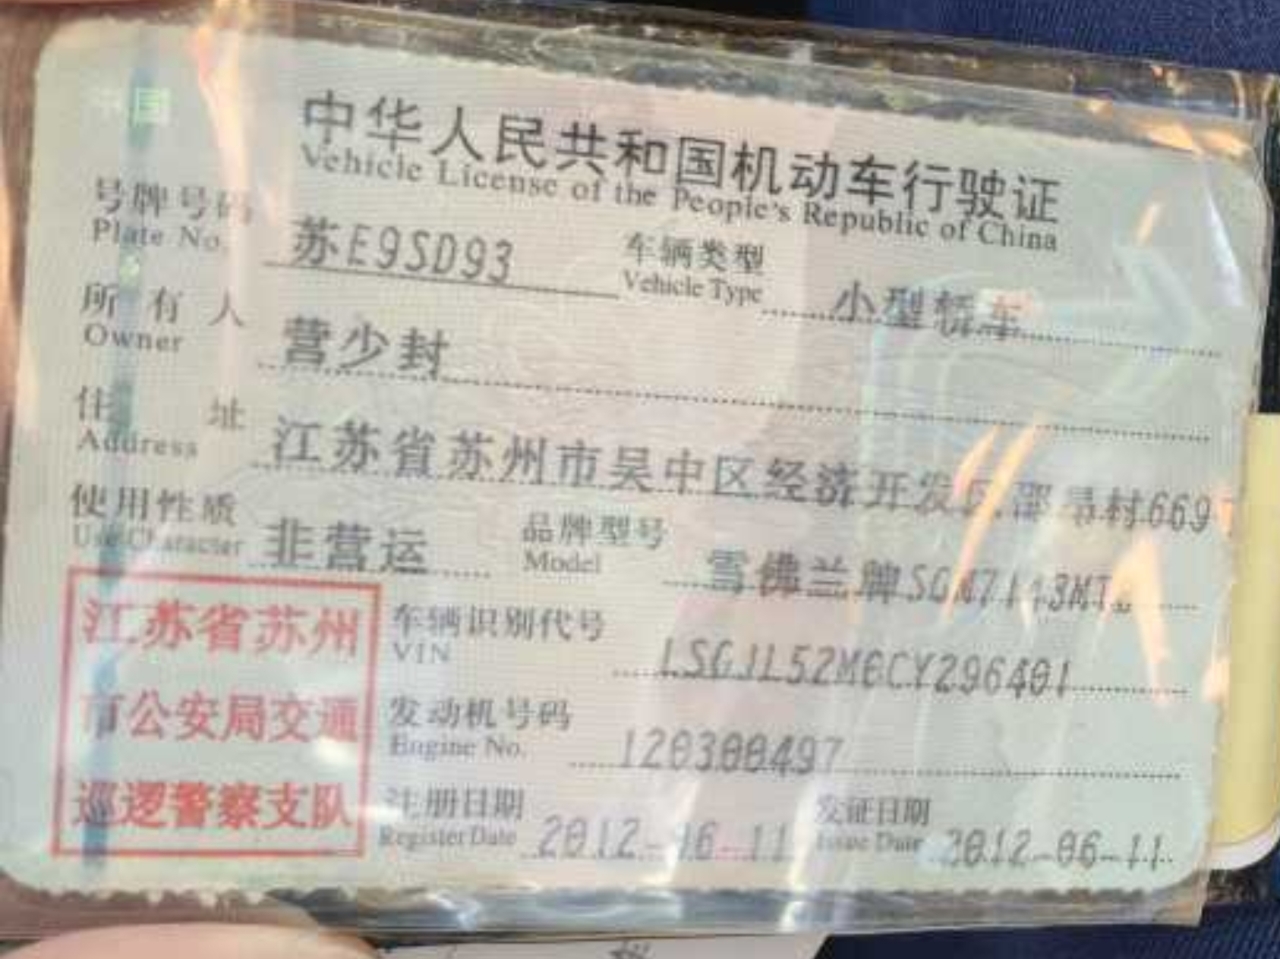 中国
中华人民共和国机动车行驶证
Vehicle License of the People's Republic of China
号牌号码 苏E9SD93 车辆类型 小型轿车
Plate No. Vehicle Type
所有人 营少封
Owner
住址 江苏省苏州市吴中区经济开发区 村669
Address
使用性质 非营运 品牌型号 雪佛兰牌
Use Character Model
江苏省苏州
市公安局交通
巡逻警察支队
车辆识别代号
VIN
发动机号码 120300497
Engine No.
注册日期 发证日期 2012-06-11
Register Date Issue Date